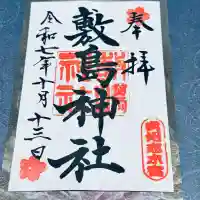 奉拝
敷島神社
令和七年十月十三日